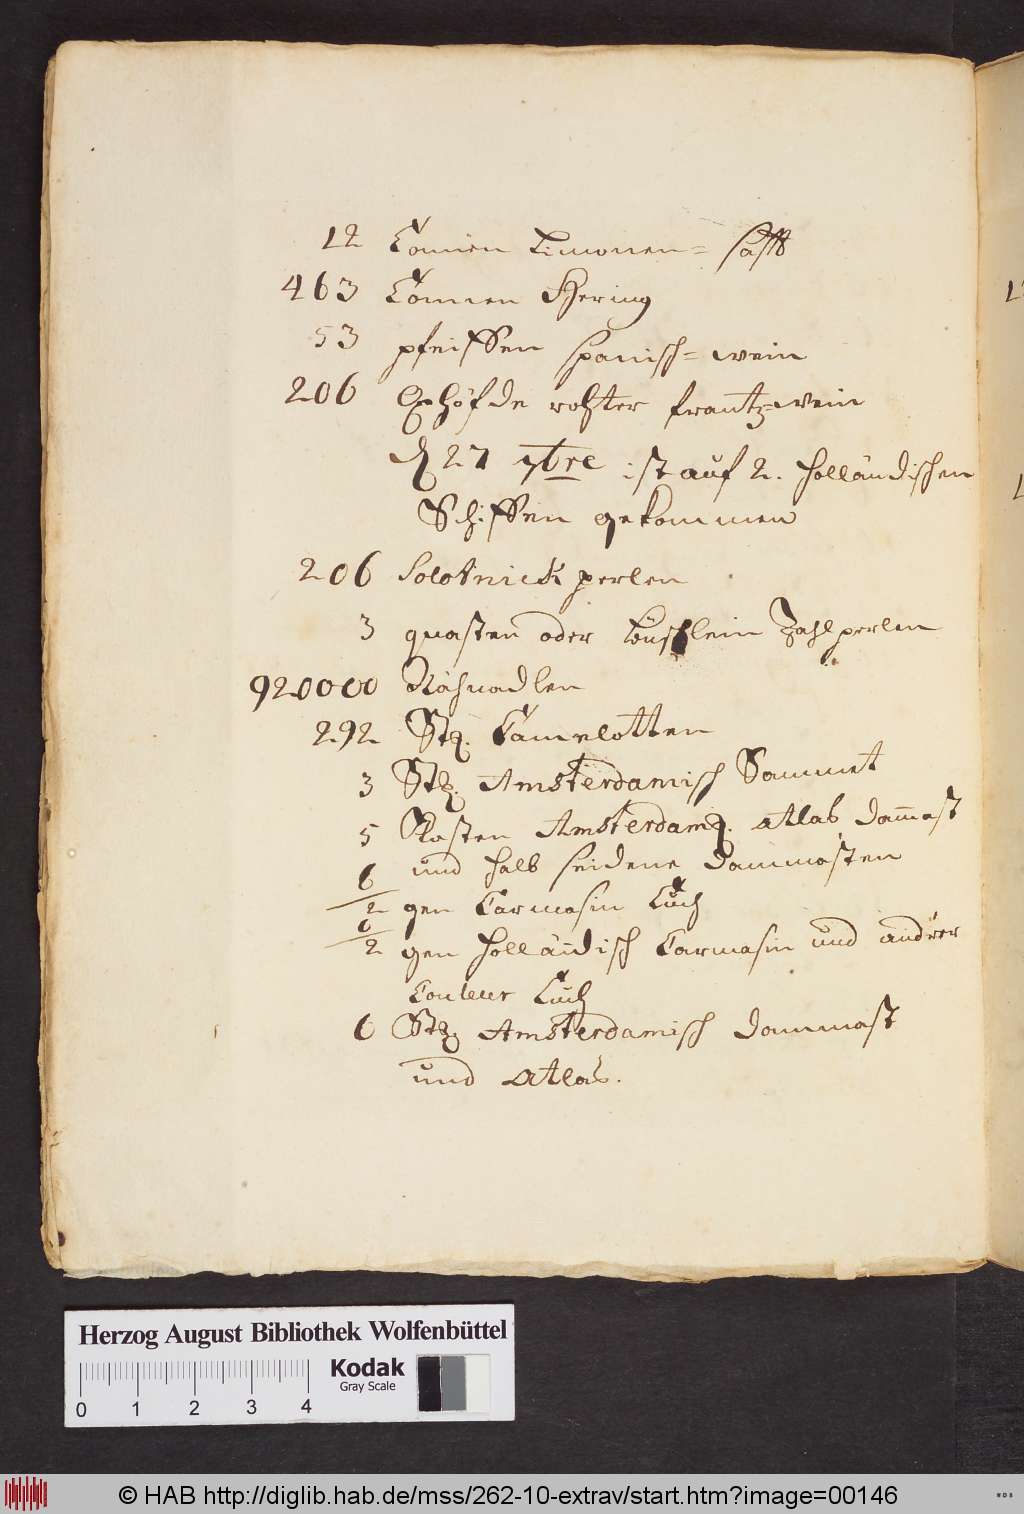 12 Tonnen Limonen= safft
463 Tonnen Hering
53 pfeiffen spanisch= wein
206 Oxhöfde rohter frantz=wein
d 27 7bre ist auf 2. holländischen
Schiffen gekommen
206 Solotnick perlen
3 quasten oder büschlein Zahlperlen
920000 Nähnadlen
292 Stk. Camelotten
3 Stk. Amsterdamisch Sammet
5 Kasten Amsterdam. atlas dammast
und halb seidene dammasten
6/2 gen Carmasin Tuch
6/2 gen holländisch Carmasin und andrer
Couleur Tuch
6 Stk. Amsterdamisch dammast
und atlas.
Herzog August Bibliothek Wolfenbüttel
Kodak
Gray Scale
0 1 2 3 4
© HAB http://diglib.hab.de/mss/262-10-extrav/start.htm?image=00146